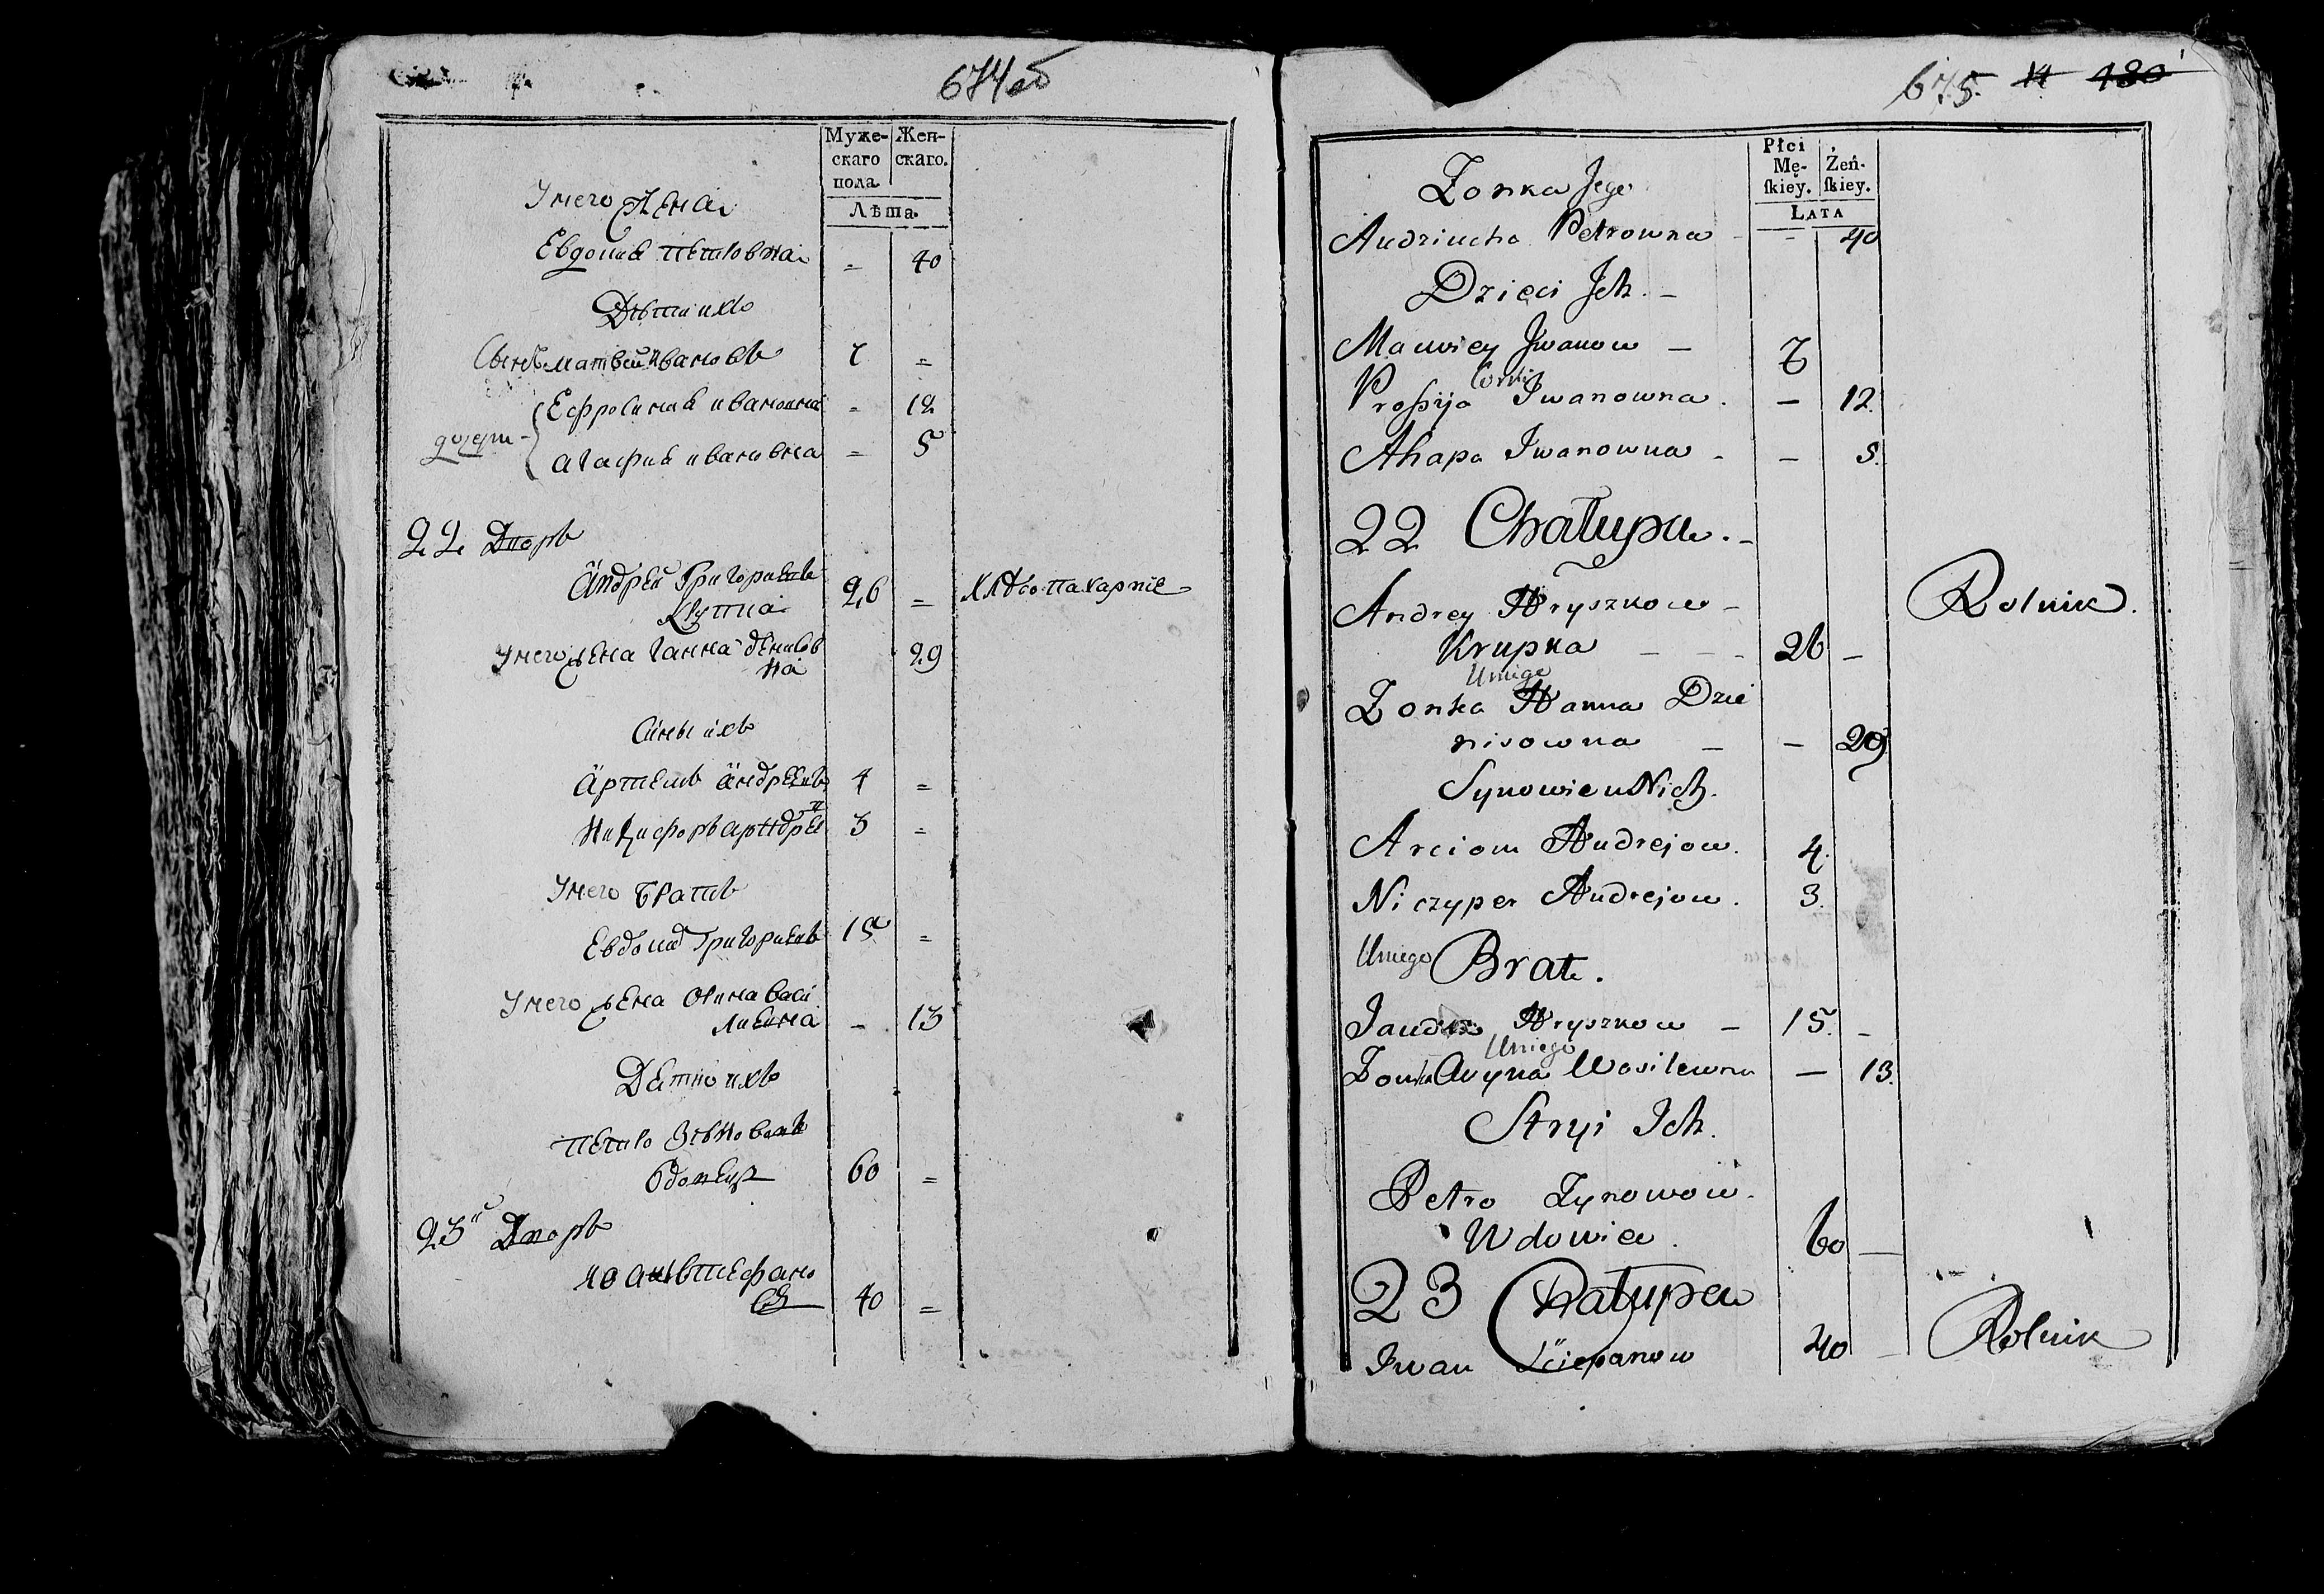 674об
Муже-
скаго
пола.
Жен-
скаго.
Лѣта.
У него жена
Евдокия Петровна = 40
Дѣти ихъ
Сынъ Матвей Ивановъ 7 =
дочери
Ефросиния Ивановна = 12
Агафия Ивановна = 5
22 Дворъ
Андрей Григориевъ
Крупка 26 = хлѣбопахарпіе
У него жена Ганна Денисов
на 29
Сины ихъ
Артемъ Андреевъ 4 =
Никифоръ Андрее 3 =
У него братъ
Григориевъ 15 =
У него жена Васи
лиевна – 13
ихъ
Петро
вдовец 60 =
23й Дворъ
40 =
675. 14 480
Płci
Mę-
ſkiey.
Żeń-
ſkiey.
LATA
Zonka Jego
Audziucha Petrowna - - 40
Dzieci Jch. -
Mauwiey Jwanow - 7
Corki
Prosija Iwanowna. - 12.
Ahapa Iwanowna - - 5.
22 Chałupa. -
Andrey Hryszkow - Rolnik.
Krupka - - - 26 -
Uniego
Zonka Hanna Dzie
nisowna - - 29
Synowie u Nich.
Arciom Andrejow. 4.
Niczyper Andrejow. 3.
Uniego Brat.
Hryszkow - 15. -
Uniego
Zonka Wasilewna - 13.
Stryi Ich.
Petro Zynowow.
Wdowiec. 60 -
23 Chałupa
Iwan Sciepanow 40 - Rolnik